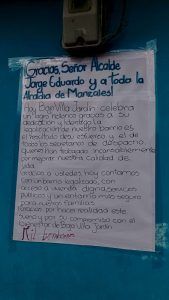 ¡Gracias, Señor Alcalde
Jorge Eduardo y a Toda la
Alcaldía de Manizales!
Hoy Bajo Villa Jardín celebra
un logro histórico gracias a su
dedicación y
legalización de nuestro barrio es
el resultado del esfuerzo y el de
todos los secretarios de despacho
que han trabajado incansablemente
por mejorar nuestra calidad de
vida.
Gracias a ustedes, hoy contamos
con un barrio legalizado, con
acceso a vivienda digna, servicios
públicos y un entorno más seguro
para nuestras familias.
¡Gracias por hacer realidad este
sueño y por su compromiso con el
bienestar de Bajo Villa Jardín.